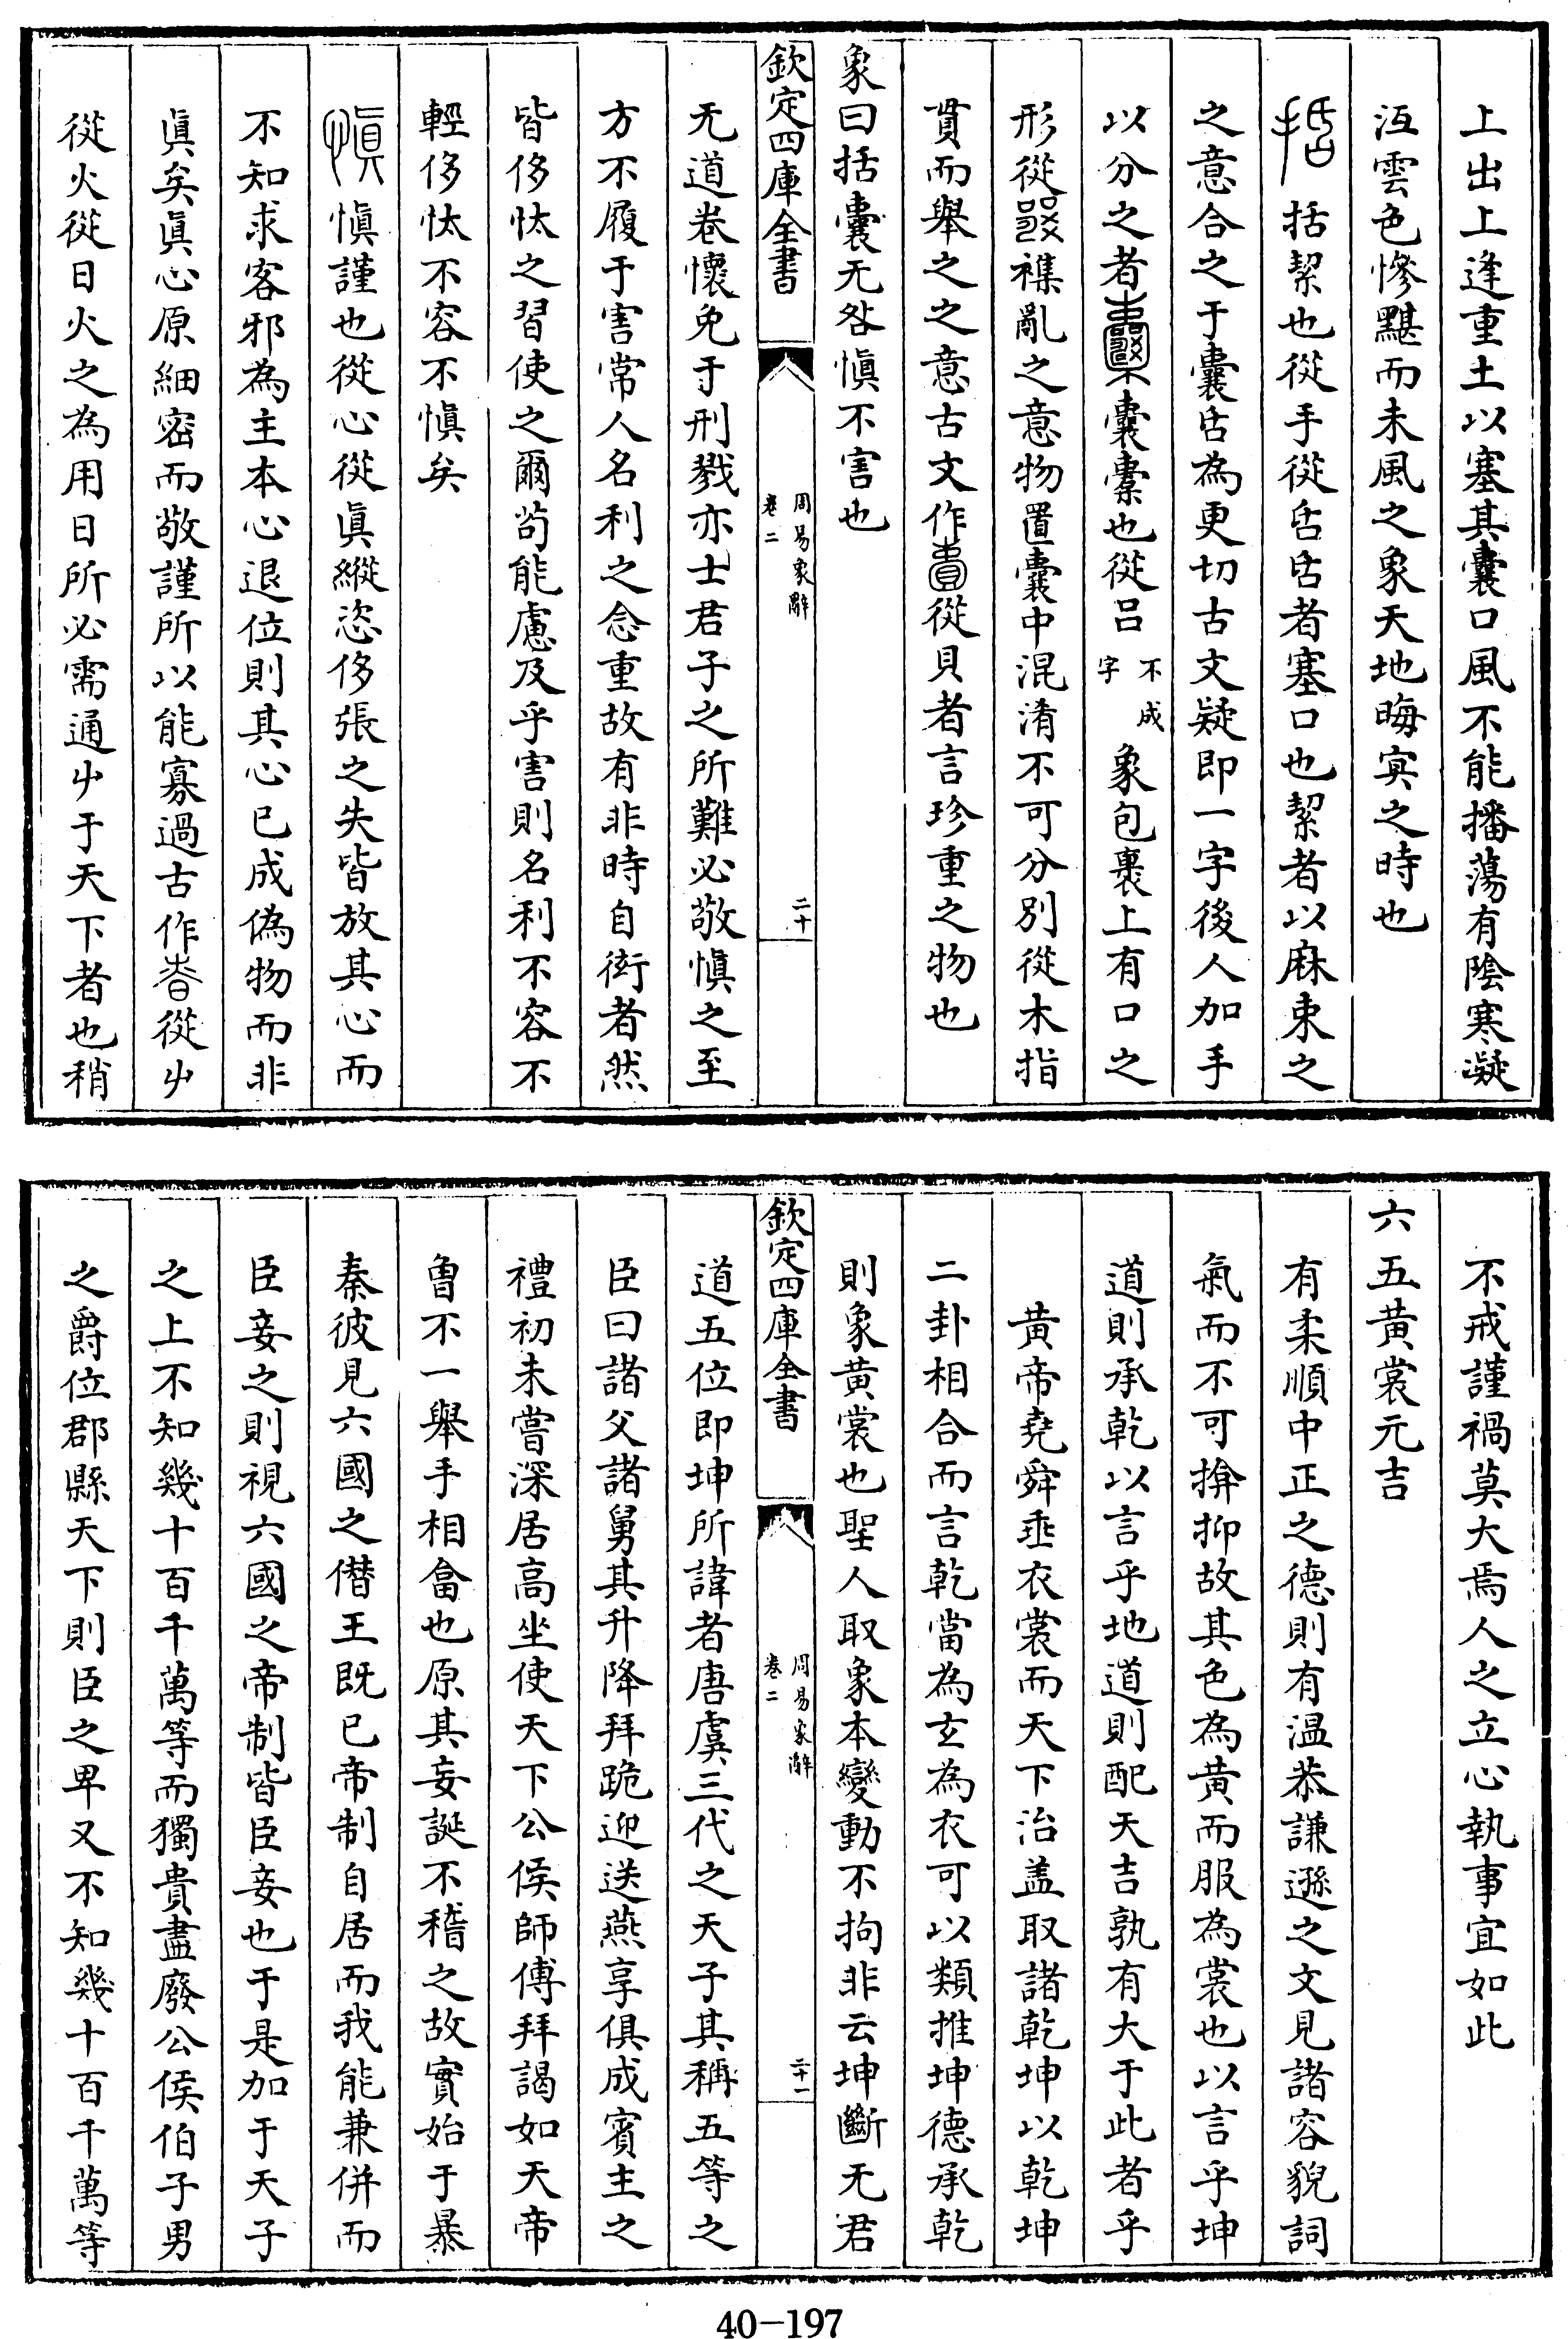 上出上逢重土以塞其囊口風不能播蕩有陰寒凝
沍雲色慘黮而未風之象天地晦㝠之時也
括絜也從手從𠯑𠯑者塞口也絜者以麻束之
之意合之于囊𠯑為更切古文疑即一字後人加手
以分之者囊橐也從吕不成字象包裹上有口之
形從㗊襍亂之意物置囊中混淆不可分別從木指
貫而舉之之意古文作從貝者言珍重之物也
象曰括囊无咎慎不害也
欽定四庫全書
周易象辭
卷二
二十
无道卷懷免于刑戮亦士君子之所難必敬愼之至
方不履于害常人名利之念重故有非時自衒者然
皆侈忲之習使之爾茍能慮及乎害則名利不容不
輕侈忲不容不愼矣
愼謹也從心從眞縱恣侈張之失皆放其心而
不知求客邪為主本心退位則其心已成偽物而非
眞矣眞心原細密而敬謹所以能寡過古作㫺從屮
從火從日火之為用日所必需通屮于天下者也稍
不戒謹禍莫大焉人之立心執事宜如此
六五黄裳元吉
有柔順中正之德則有温恭謙遜之文見諸容貌詞
氣而不可揜抑故其色為黄而服為裳也以言乎坤
道則承乾以言乎地道則配天吉孰有大于此者乎
黄帝堯舜垂衣裳而天下治盖取諸乾坤以乾坤
二卦相合而言乾當為玄為衣可以類推坤德承乾
則象黄裳也聖人取象本變動不拘非云坤斷无君
欽定四庫全書
周易象辭
卷二
二十一
道五位即坤所諱者唐虞三代之天子其稱五等之
臣曰諸父諸舅其升降拜跪迎送燕享俱成賓主之
禮初未嘗深居高坐使天下公侯師傅拜謁如天帝
曾不一舉手相畣也原其妄誕不稽之故實始于暴
秦彼見六國之僣王既已帝制自居而我能兼併而
臣妾之則視六國之帝制皆臣妾也于是加于天子
之上不知幾十百千萬等而獨貴盡廢公侯伯子男
之爵位郡縣天下則臣之卑又不知幾十百千萬等
40-197